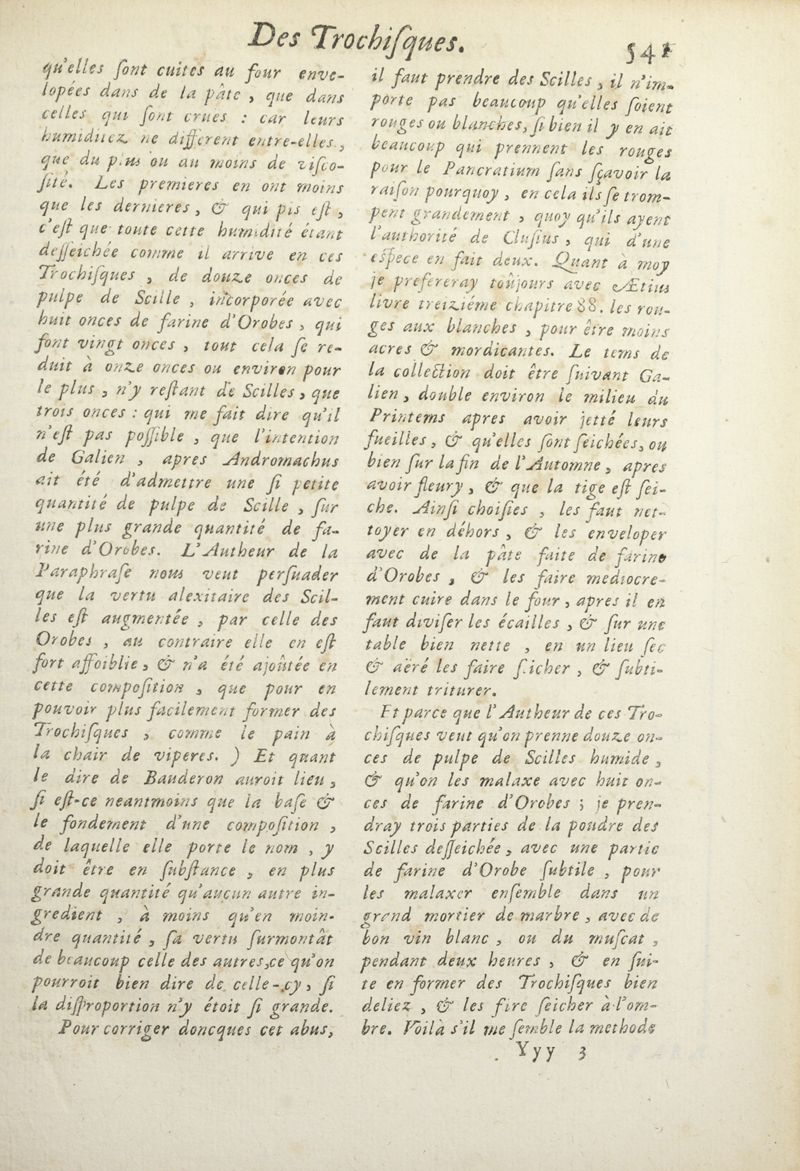 Des Trochisques. 541
qu'elles sont cuites au four enve-
lopées dans de la pâte , que dans
celles qui sont crues : car leurs
humiditez ne different entre-elles,
que du plus ou au moins de visco-
sité. Les premieres en ont moins
que les dernieres, & qui pis est ,
c'est que toute cette humidité étant
desseichée comme il arrive en ces
Trochisques , de douze onces de
pulpe de Scille , incorporée avec
huit onces de farine d'Orobes , qui
font vingt onces , tout cela se re-
duit à onze onces ou environ pour
le plus , n'y restant de Scilles, que
trois onces : qui me fait dire qu'il
n'est pas possible , que l'intention
de Galien , apres Andromachus
ait été d'admettre une si petite
quantité de pulpe de Scille , sur
une plus grande quantité de fa-
rine d'Orobes. L'Autheur de la
Paraphrase nous veut persuader
que la vertu alexitaire des Scil-
les est augmentée , par celle des
Orobes , au contraire elle en est
fort affoiblie, & n'a été ajoûtée en
cette composition , que pour en
pouvoir plus facilement former des
Trochisques , comme le pain à
la chair de viperes. ) Et quant
le dire de Bauderon auroit lieu ,
si est-ce neantmoins que la base &
le fondement d'une composition ,
de laquelle elle porte le nom , y
doit être en substance , en plus
grande quantité qu'aucun autre in-
gredient , à moins qu'en moin-
dre quantité , sa vertu surmontât
de beaucoup celle des autres,ce qu'on
pourroit bien dire de celle-cy, si
la disproportion n'y étoit si grande.
Pour corriger doncques cet abus,
il faut prendre des Scilles , il n'im-
porte pas beaucoup qu'elles soient
rouges ou blanches, si bien il y en ait
beaucoup qui prennent les rouges
pour le Pancratium sans sçavoir la
raison pourquoy , en cela ils se trom-
pent grandement , quoy qu'ils ayent
l'authorité de Clusius , qui d'une
espece en fait deux. Quant à moy
je prefereray toûjours avec Ætius
livre treiziéme chapitre 88. les rou-
ges aux blanches , pour être moins
acres & mordicantes. Le tems de
la collection doit être suivant Ga-
lien , double environ le milieu du
Printems apres avoir jetté leurs
fueilles , & qu'elles sont seichées, ou
bien sur la fin de l'Automne , apres
avoir fleury , & que la tige est sei-
che. Ainsi choisies , les faut net-
toyer en déhors , & les enveloper
avec de la pâte faite de farine
d'Orobes , & les faire mediocre-
ment cuire dans le four , apres il en
faut diviser les écailles , & sur une
table bien nette , en un lieu sec
& aëré les faire sicher , & subti-
lement triturer.
Et parce que l'Autheur de ces Tro-
chisques veut qu'on prenne douze on-
ces de pulpe de Scilles humide ,
& qu'on les malaxe avec huit on-
ces de farine d'Orobes ; je pren-
dray trois parties de la poudre des
Scilles desseichée , avec une partie
de farine d'Orobe subtile , pour
les malaxer ensemble dans un
grand mortier de marbre , avec de
bon vin blanc , ou du muscat ,
pendant deux heures , & en sui-
te en former des Trochisques bien
deliez , & les fire seicher à l'om-
bre. Voilà s'il me semble la methode
Yyy 3